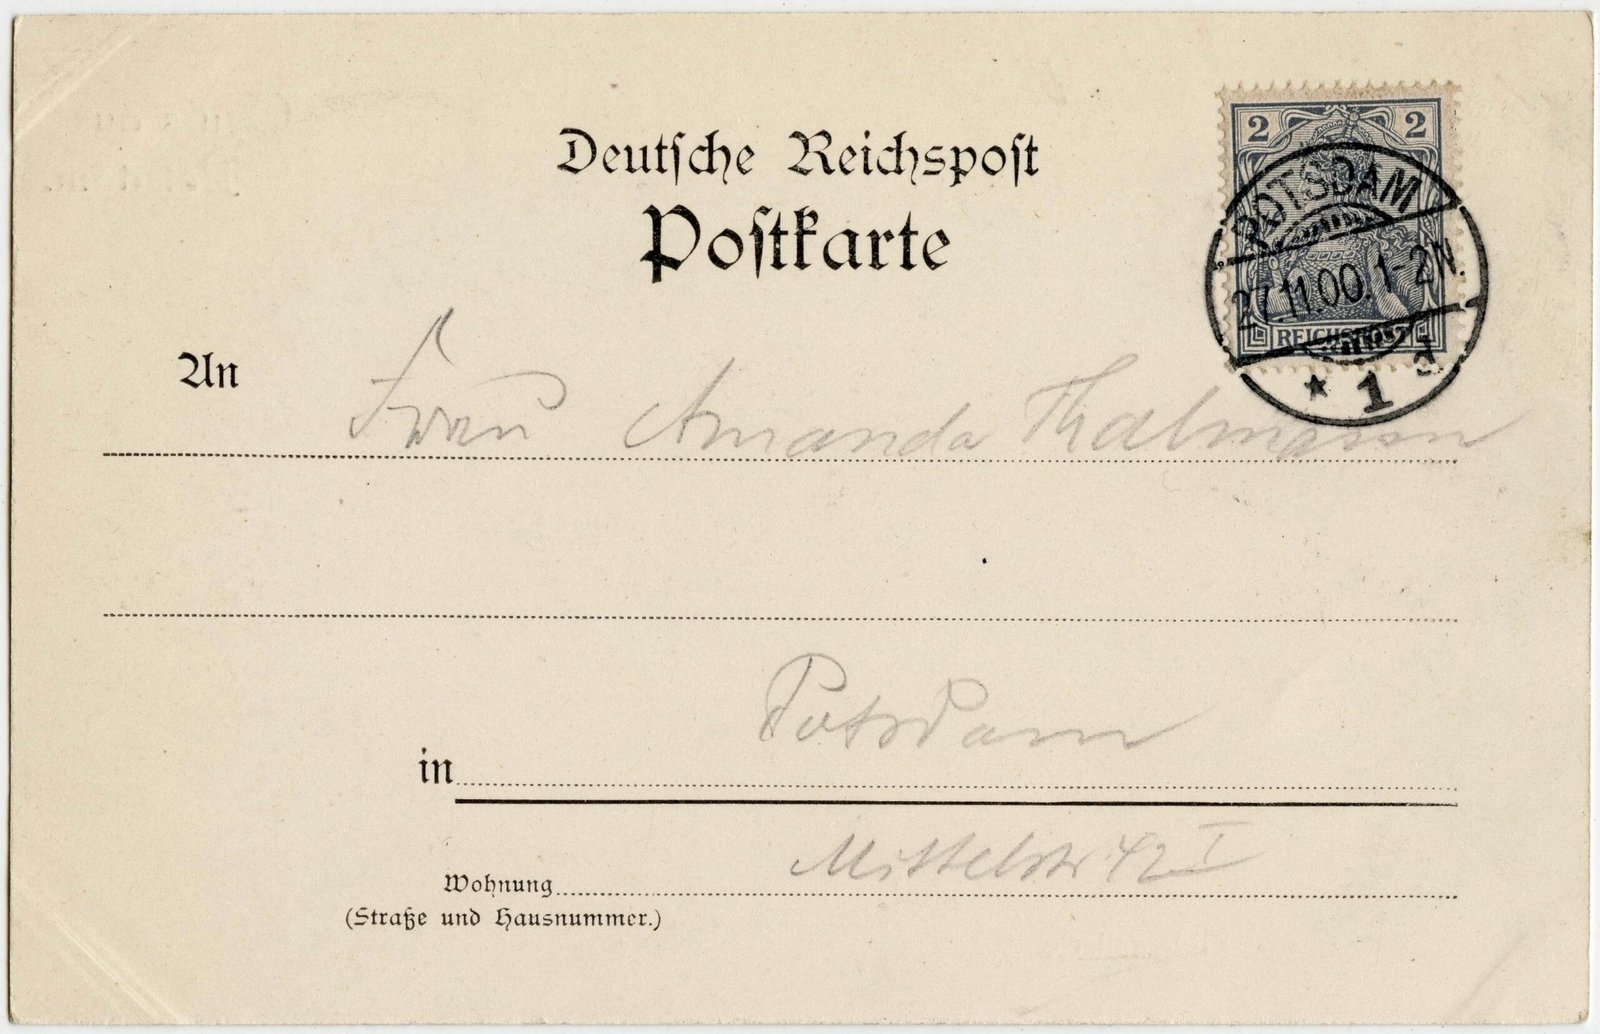 Deutsche Reichspost
Postkarte
2 2
POTSDAM
27.11.00. 1-2N.
REICHSPOST
* 1 d
An Frau Amanda Thalmann
in Potsdam
Wohnung Mittelstr 42 I
(Straße und Hausnummer.)